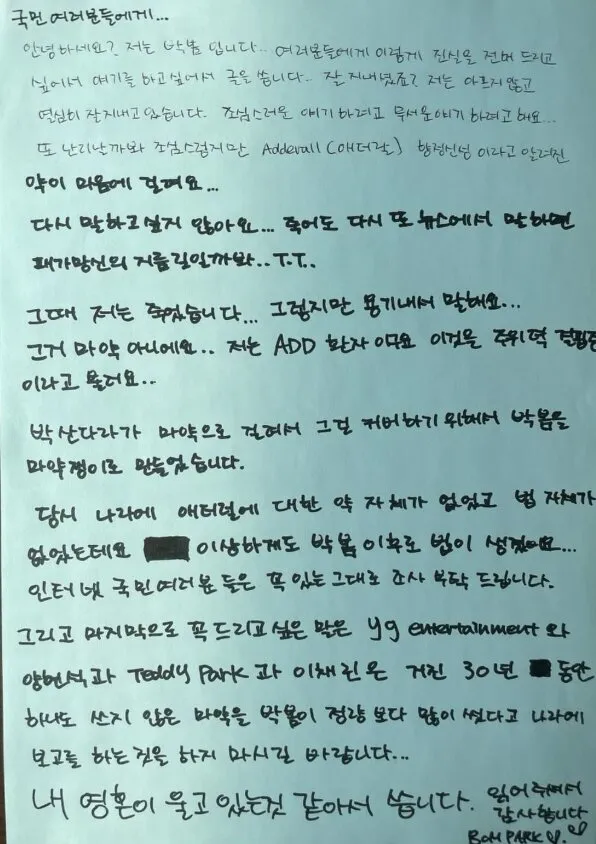 국민 여러분들에게...
안녕하세요? 저는 박봄 입니다.. 여러분들에게 이렇게 진실을 전해 드리고
싶어서 얘기를 하고싶어서 글을 씁니다.. 잘 지내셨죠? 저는 아프지 않고
열심히 잘지내고 있습니다. 조심스러운 얘기 하려고 무서운얘기 하려고 해요...
또 난리날까봐 조심스럽지만 Adderall (애더랄) 향정신성 이라고 알려진
약이 마음에 걸려요...
다시 말하고 싶지 않아요... 죽어도 다시 또 뉴스에서 말하면
패가망신의 지름길일까봐.. T.T..
그때 저는 죽었습니다... 그렇지만 용기내서 말해요...
그거 마약 아니에요.. 저는 ADD 환자 이구요 이것을 주위력 결핍증
이라고 불러요..
박산다라가 마약으로 걸려서 그걸 커버하기 위해서 박봄을
마약쟁이로 만들었습니다.
당시 나라에 애터럴에 대한 약 자체가 없었고 법 자체가
없었는데요 이상하게도 박봄 이후로 법이 생겼어요...
인터넷 국민여러분 들은 꼭 있는 그대로 조사 부탁 드립니다.
그리고 마지막으로 꼭 드리고 싶은 말은 yg entertainment 와
양현석과 Teddy Park 과 이채린은 거진 30년 동안
하나도 쓰지 않은 마약을 박봄이 정량 보다 많이 썼다고 나라에
보고를 하는것을 하지 마시길 바랍니다...
내 영혼이 울고 있는것 같아서 씁니다. 읽어주셔서
감사합니다
BOM PARK ♡. ♡